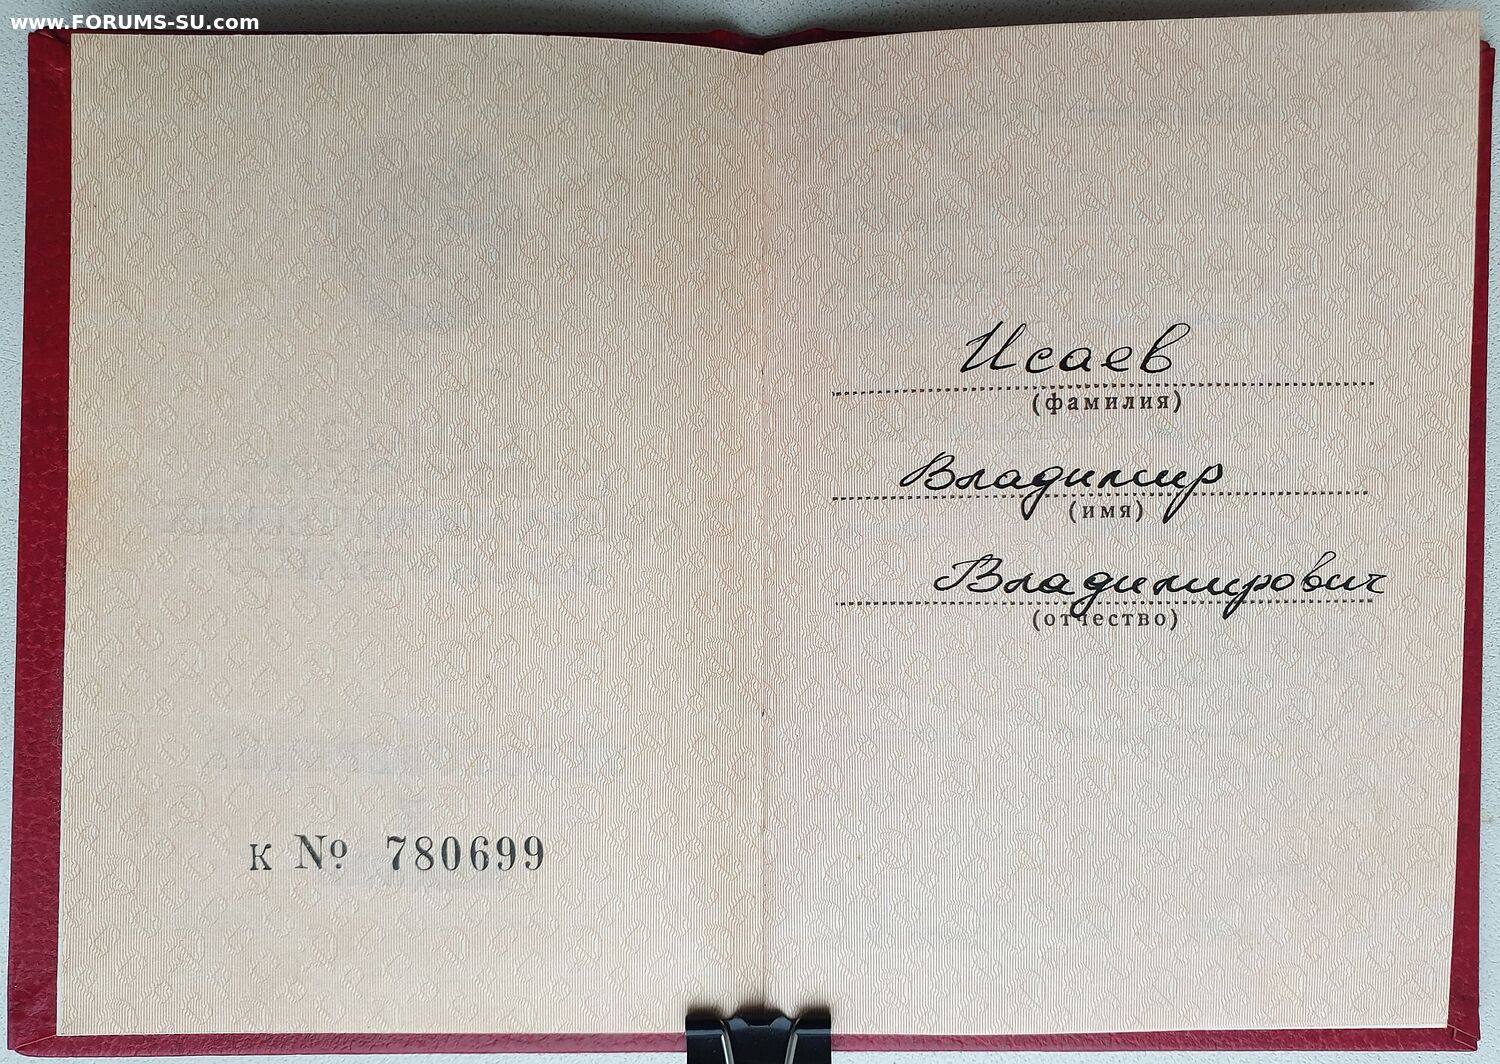 www.FORUMS-SU.com
К № 780699
Исаев
(фамилия)
Владимир
(имя)
Владимирович
(отчество)